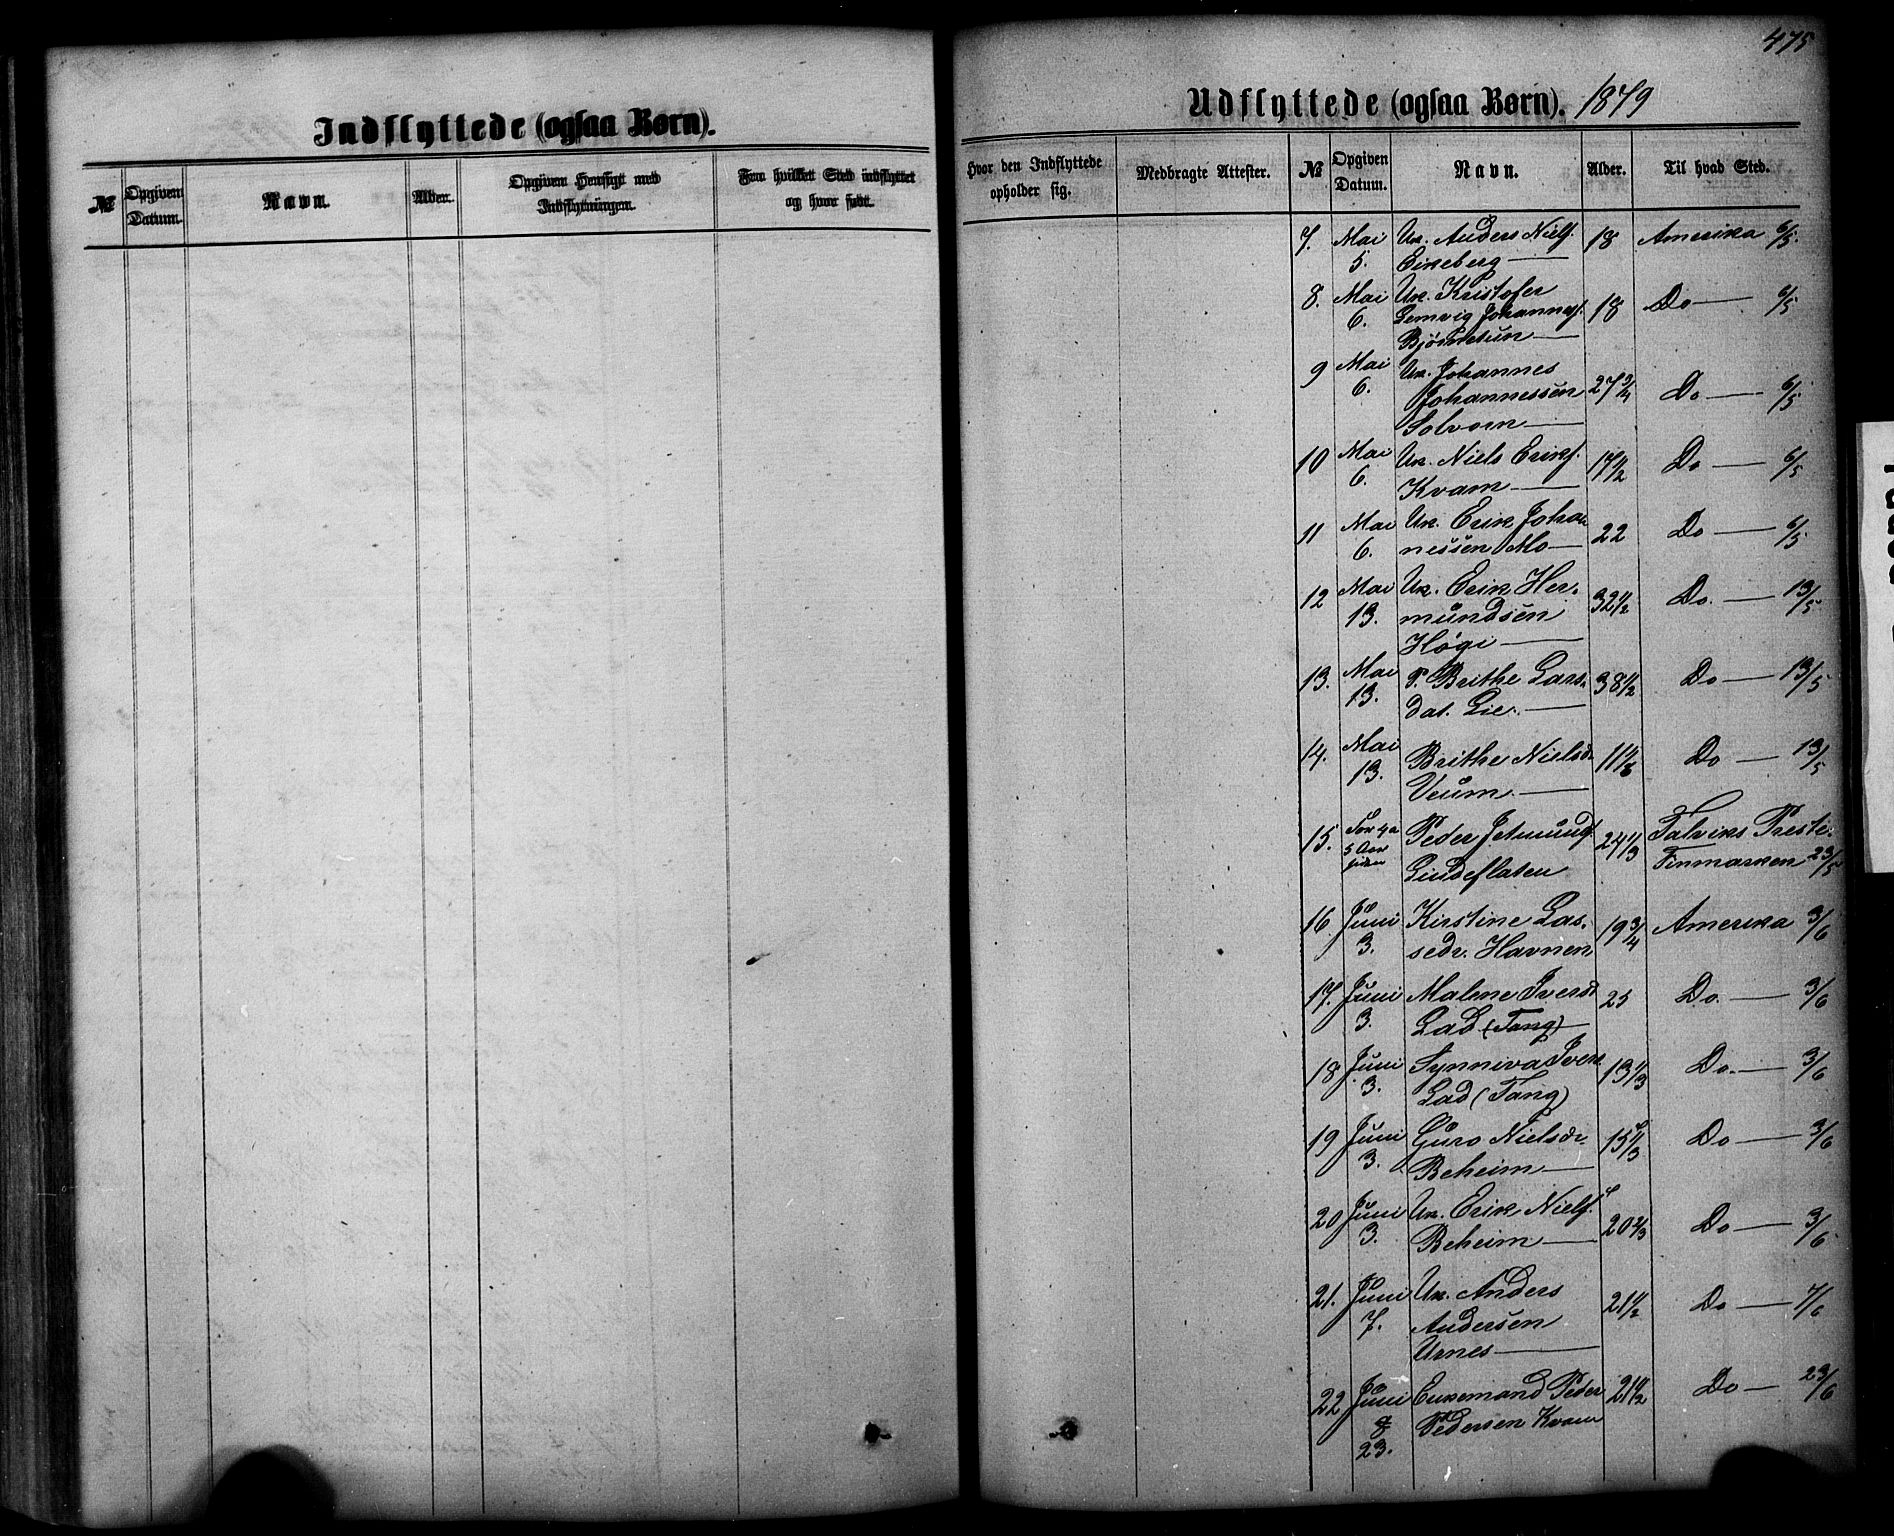 475
Indflyttede (ogsaa Børn).
№
Opgiven Datum.
Navn.
Alder.
Opgiven Hensigt med Indflytningen.
Fra hvilket Sted indflyttet og hvor født.
Udflyttede (ogsaa Børn). 1879
Hvor den Indflyttede opholder sig.
Medbragte Attester.
№
Opgiven Datum.
Navn.
Alder.
Til hvad Sted.
7. Mai Uk. Anders Nielsf. 18 Amerika 6/5.
5. Eikeberg
8. Mai Uk. Kristofer
6. Lemvig Johannesf. 18 Do 6/5
Bjørnetun
9 Mai Uk. Johannes
6. Johannessen 27 3/4 Do 6/5
Solvorn
10 Mai Uk. Niels Erikf. 17 1/2 Do 6/5
6. Kvam
11 Mai Uk. Erik Joha=
6. nessen Mo 22 Do 6/5
12 Mai Uk. Erik Her= 32 1/2 Do. 13/5
13. mundsen
Høgi
13. Mai P. Brithe Lars= 38 1/2 Do 13/5
13. dat. Lie.
14. Mai Brithe Nielsd. Do 13/5
13. Veum.
15. For 4 a Peder Jetmundf. 24 1/3 Talviks Preste=
5 Aar siden Lindeflaten Finmarken 23/5
16 Juni Kirstine Las= 19 3/4 Amerika 3/6
3. sedr. Havnen
17. Juni Malene Iversd. 25 Do. 3/6
3. Lad (Tang)
18 Juni Synniva Ivers 13 1/3 Do. 3/6
3. Lad (Tang)
19 Juni Guro Nielsdr. 15 1/3 Do 3/6
3. Beheim
20 Juni Uk. Erik Nielsf. 20 2/3 Do 3/6
3. Beheim
21. Juni Uk. Anders 21 1/2 Do 7/6
7. Andersen
Urnes
22 Juni Enkemand Peder 21 1/2 Do 23/6
23. Pedersen Kvam